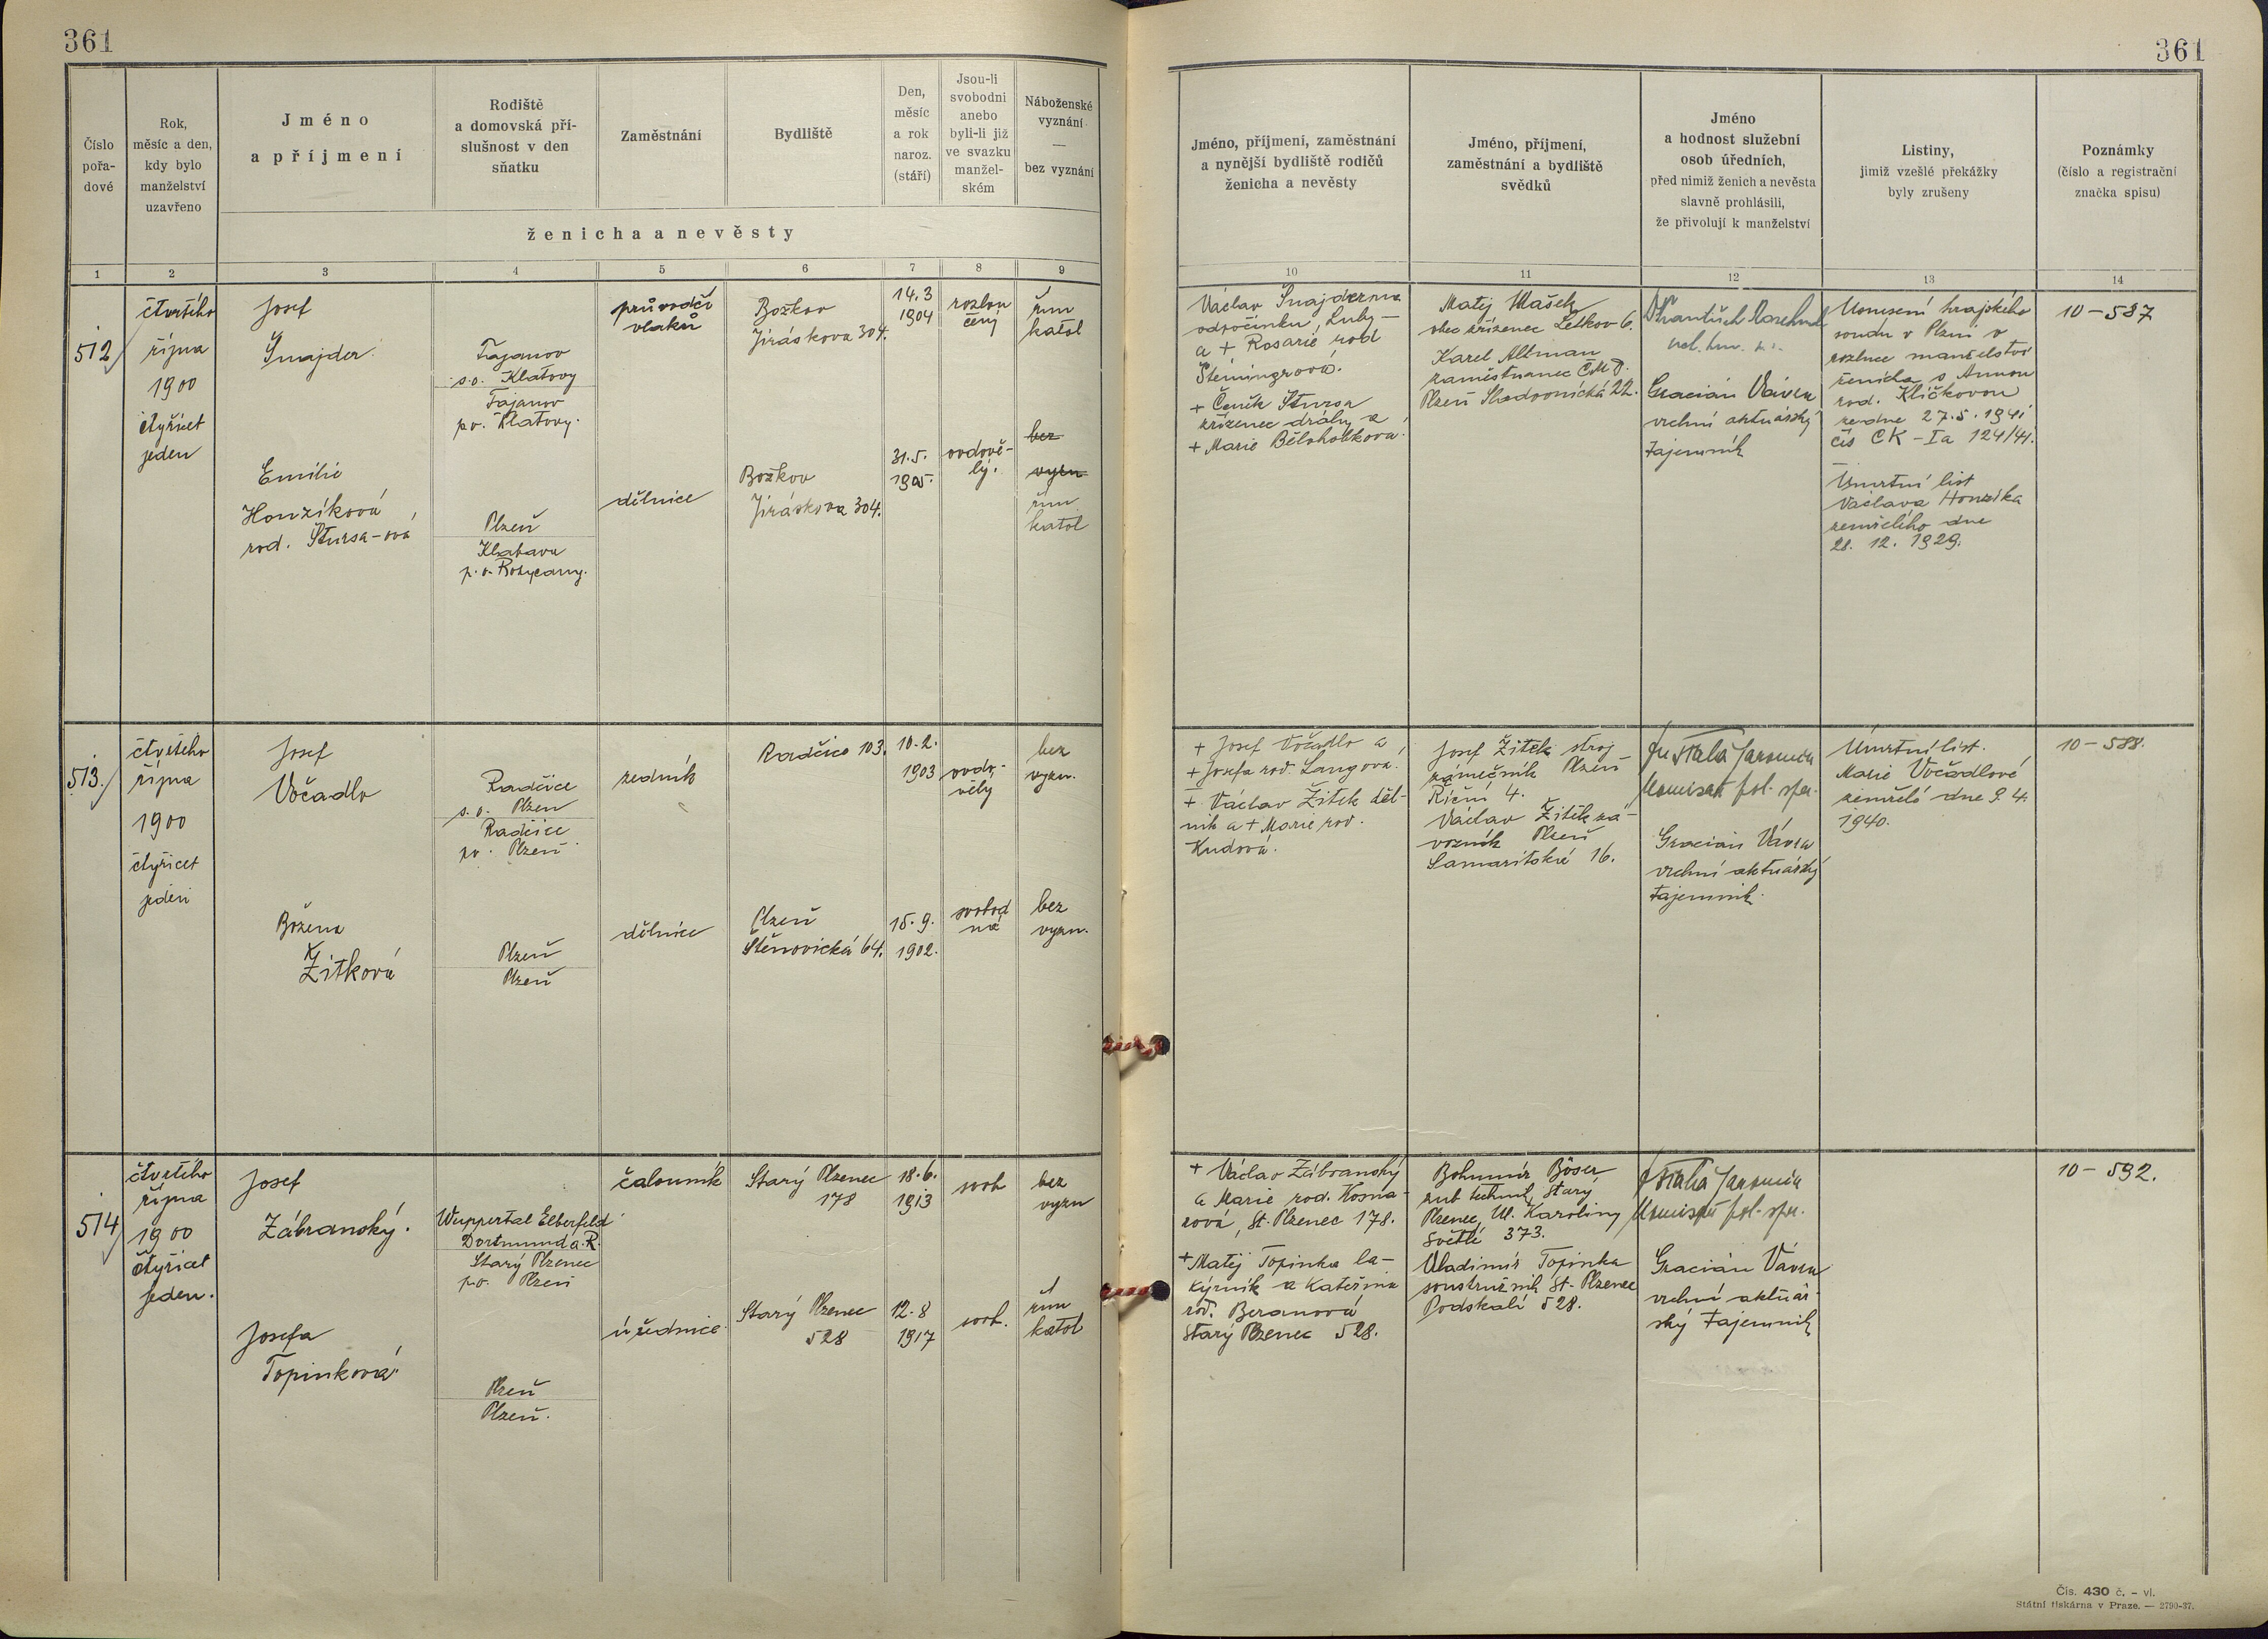 361
361
Číslo
pořa-
dové
Rok,
měsíc a den,
kdy bylo
manželství
uzavřeno
Jméno
a příjmení
Rodiště
a domovská pří-
slušnost v den
sňatku
Zaměstnání
Bydliště
Den,
měsíc
a rok
naroz.
(stáří)
Jsou-li
svobodni
anebo
byli-li již
ve svazku
manžel-
ském
Náboženské
vyznání
—
bez vyznání
ženicha a nevěsty
Jméno, příjmení, zaměstnání
a nynější bydliště rodičů
ženicha a nevěsty
Jméno, příjmení,
zaměstnání a bydliště
svědků
Jméno
a hodnost služební
osob úředních,
před nimiž ženich a nevěsta
slavně prohlásili,
že přivolují k manželství
Listiny,
jimiž vzešlé překážky
byly zrušeny
Poznámky
(číslo a registrační
značka spisu)
1
2
3
4
5
6
7
8
9
10
11
12
13
14
512
čtvrtého
října
1900
čtyřicet
jeden
Josef
Šnajder
Tajanov
s.o. Klatovy
Tajanov
po. Klatovy.
průvodčí
vlaků
Božkov
Jiráskova 304.
14.3
1904
rozlou
čený
řím
katol
Emilie
Honzíková
rod. Štursa-ová
Plzeň
Klabava
p.o. Rokycany.
dělnice
Božkov
Jiráskova 304.
31.5.
1905.
ovdově-
lý.
bez
vyzn
řím.
katol
Václav Šnajder na
odpočinku, Luby —
a + Rosarie rod
+ Čeněk Štursa
zřízenec dráhy a
+ Marie Bělohoubková.
Matěj Hlašek
obec. zřízenec Letkov 6.
Karel Altman
zaměstnanec ČMD.
Plzeň Sladovnická 22.
Gracián Vávra
vrchní aktuárský
tajemník
Usnesení krajského
soudu v Plzni o
rozluce manželství
ženicha s Annou
rod. Klíčkovou
ze dne 27.5.1941
čís CK-Ia 124/41.
Úmrtní list
Václava Honzíka
zemřelého dne
28. 12. 1929.
10-587
513.
čtvrtého
října
1900
čtyřicet
jeden
Josef
Vočadlo
Radčice
s.o. Plzeň
Radčice
po. Plzeň
zedník
Radčice 103.
10.2.
1903
ovdo-
vělý
bez
vyzn.
Božena
Žitková
Plzeň
Plzeň
dělnice
Plzeň
Štěnovická 64.
15.9.
1902.
svobod
ná
bez
vyzn.
+ Josef Vočadlo a
+ Josefa rod. Langová.
+ Václav Žitek děl-
ník a + Marie rod.
Kudová.
Josef Žitek stroj
zámečník Plzeň
Říční 4.
Václav Žitek zá-
vozník Plzeň
Samaritská 16.
Gracián Vávra
vrchní aktuárský
tajemník.
Úmrtní list.
Marie Vočadlové
zemřelé dne 9. 4.
1940.
10-588.
514
čtvrtého
října
1900
čtyřicet
jeden.
Josef
Zábranský.
Wuppertal Elberfeld
Dortmund a.R.
Starý Plzenec
po. Plzeň
čalouník
Starý Plzenec
178
18.6.
1913
svob
bez
vyzn
Josefa
Topinková
Plzeň
Plzeň.
úřednice
Starý Plzenec
528
12.8
1917
svob.
řím
katol
+ Václav Zábranský
a Marie rod. Kosna-
rová, St. Plzenec 178.
+ Matěj Topinka la-
kýrník a Kateřina
rod. Beranová
Starý Plzenec 528.
Bohumír Böser
zub technik, Starý
Plzenec, Ul. Karoliny
Světlé 373.
Vladimír Topinka
soustružník St. Plzenec
Podskalí 528.
Gracián Vávra
vrchní aktuár-
ský tajemník
10-592.
Čís. 430 č. – vl.
Státní tiskárna v Praze. — 2790-37.